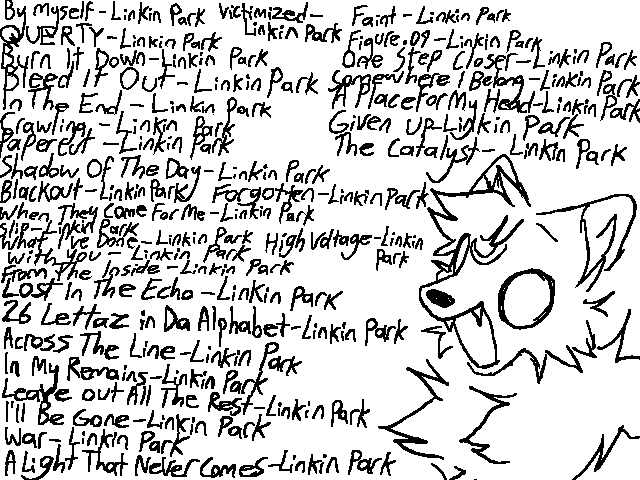 By Myself-Linkin Park Victimized-Linkin Park
QWERTY-Linkin Park
Burn It Down-Linkin Park
Bleed It Out-Linkin Park
In The End-Linkin Park
Crawling-Linkin Park
Papercut-Linkin Park
Shadow Of The Day-Linkin Park
Blackout-Linkin Park Forgotten-Linkin Park
When They Come For Me-Linkin Park
Slip-Linkin Park
What I've Done-Linkin Park High Voltage-Linkin Park
With You-Linkin Park
From The Inside-Linkin Park
Lost In The Echo-Linkin Park
26 Lettaz in Da Alphabet-Linkin Park
Across The Line-Linkin Park
In My Remains-Linkin Park
Leave out All The Rest-Linkin Park
I'll Be Gone-Linkin Park
War-Linkin Park
A Light That Never Comes-Linkin Park
Faint-Linkin Park
Figure.09-Linkin Park
One Step Closer-Linkin Park
Somewhere I Belong-Linkin Park
A Place For My Head-Linkin Park
Given Up-Linkin Park
The Catalyst-Linkin Park